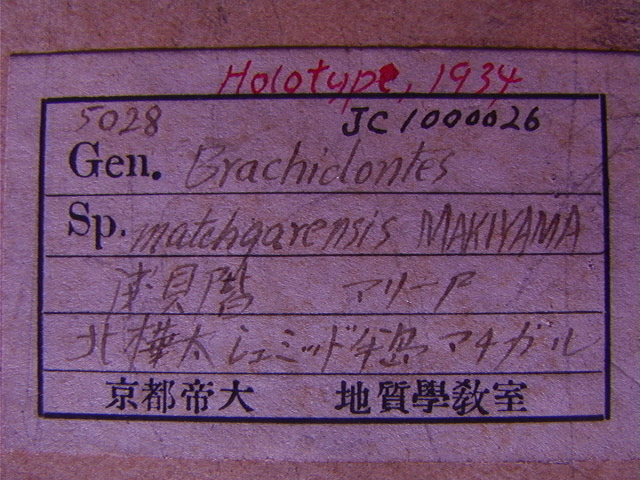 Holotype, 1934
5028 JC1000026
Gen. Brachidontes
Sp. matchgarensis MAKIYAMA
貝層
北樺太シュミット半島マチガル
京都帝大 地質學教室